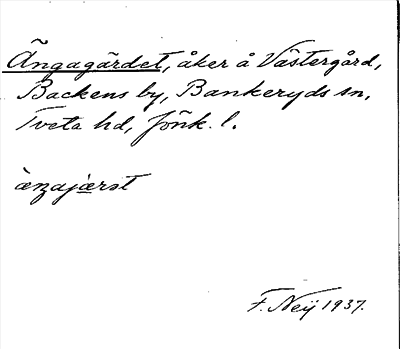 Ängagärdet, åker å Västergård,
Backens by, Bankeryds sn,
Tveta hd, Jönk. l.
àngajæ̀rət
F. Neij 1937.